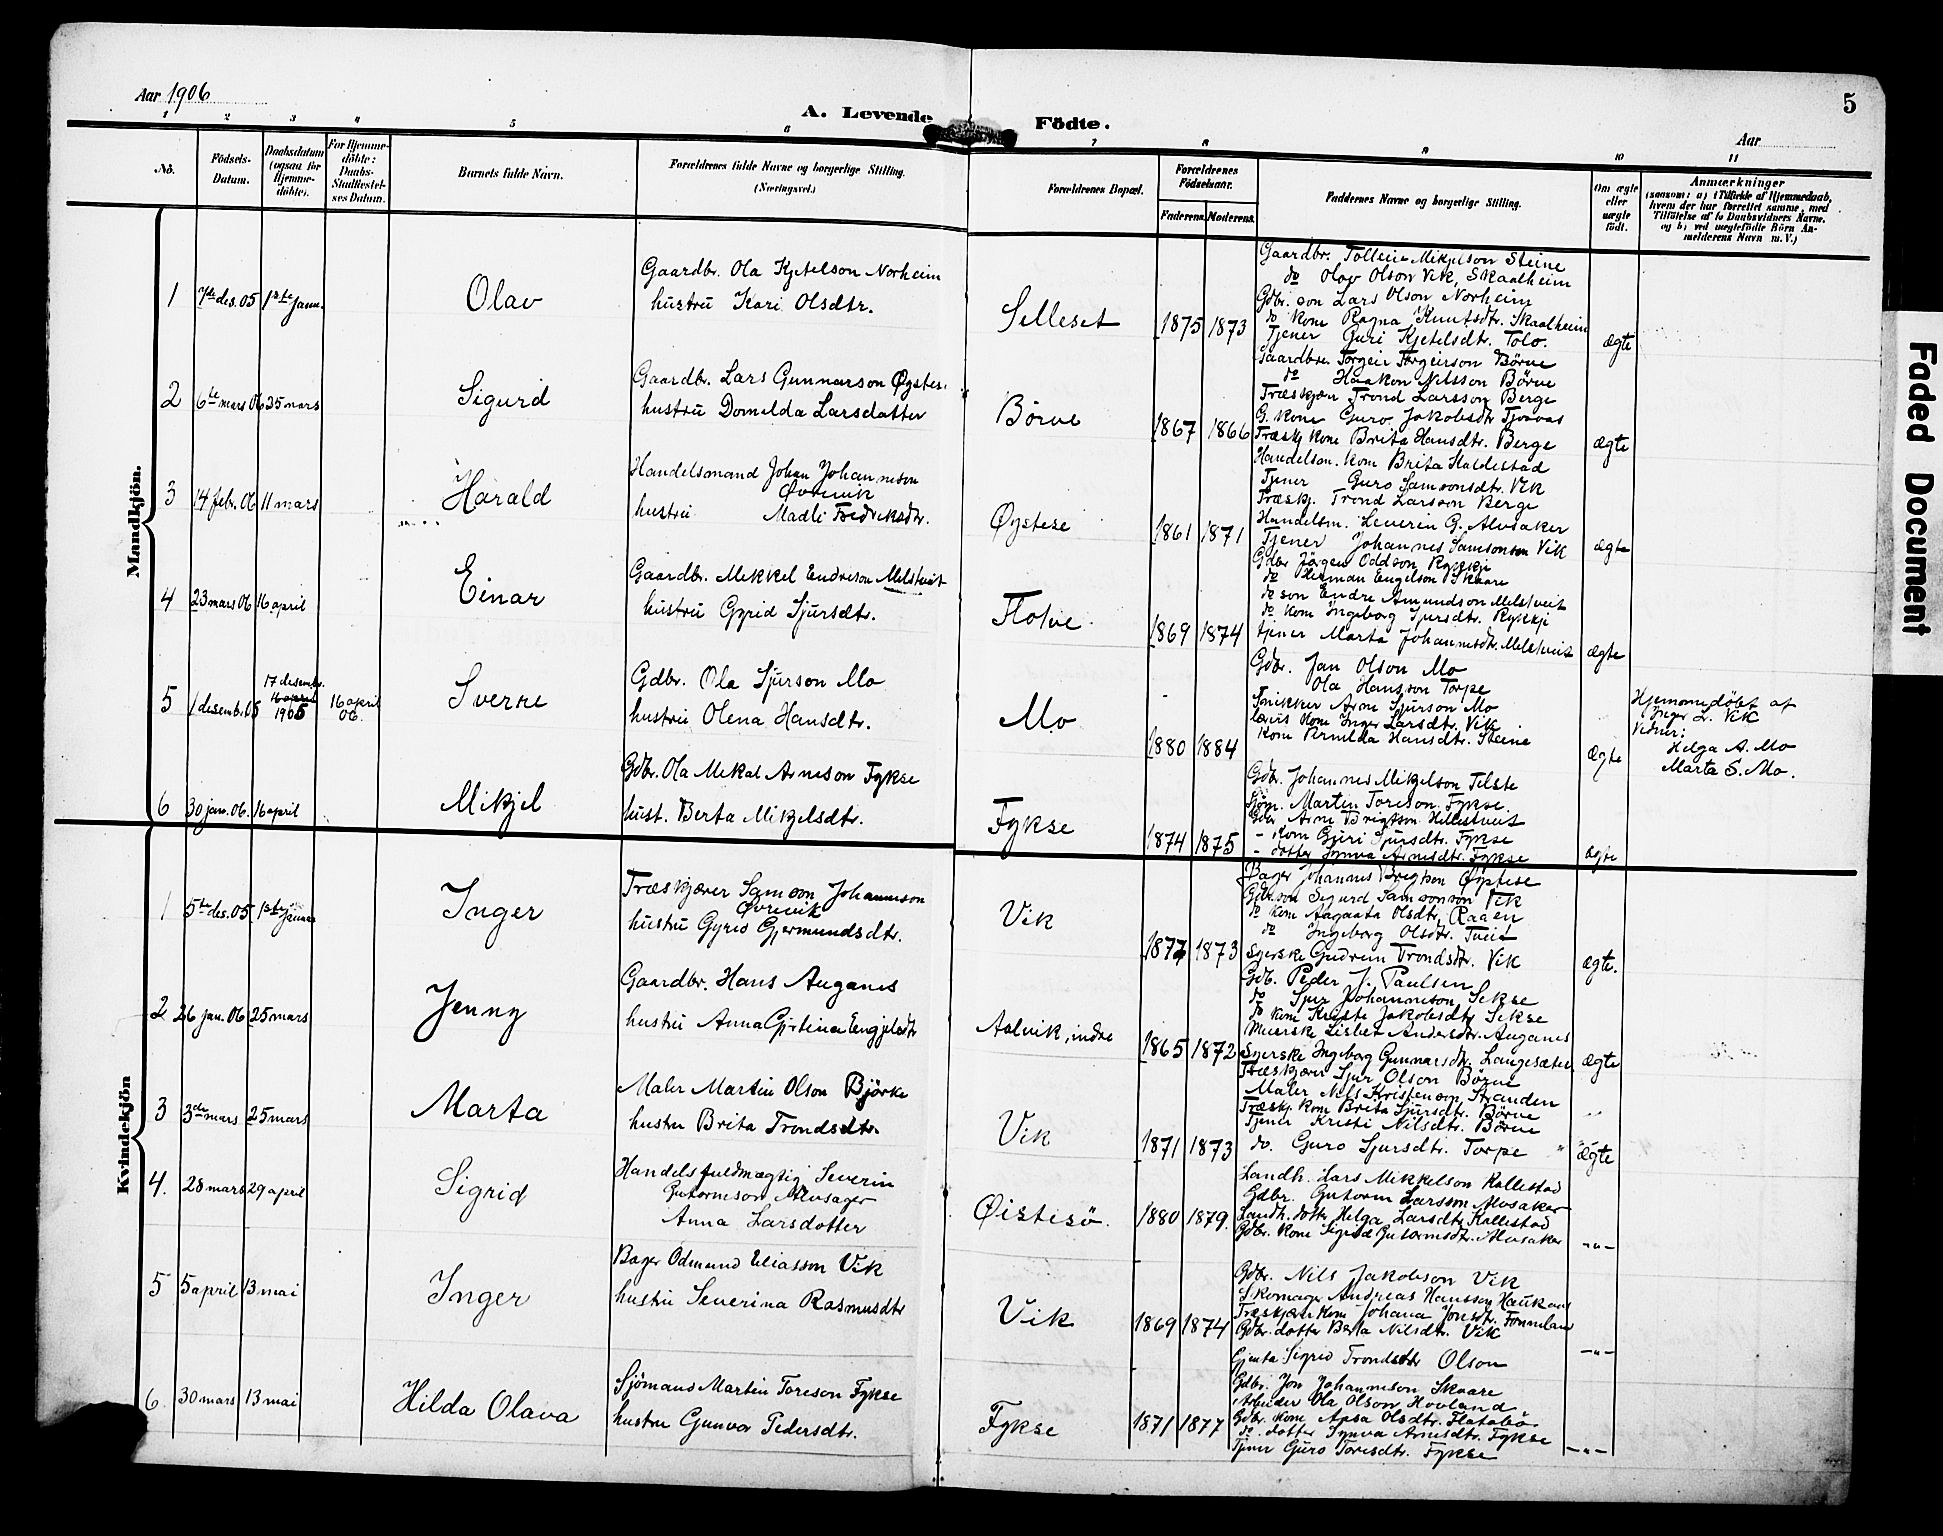 Aar 1906
A. Levende Födte.
Aar
5
1 2 3 4 5 6 7 8 9 10 11
No.
Födsels-Datum.
Daabsdatum (ogsaa for Hjemme-döbte).
For Hjemme-döbte: Daabs-Stadfæstel-ses Datum.
Barnets fulde Navn.
Forældrenes fulde Navne og borgerlige Stilling. (Næringsvei.)
Forældrenes Bopæl.
Forældrenes Födselsaar.
Faderens. Moderens.
Faddernes Navne og borgerlige Stilling.
Om ægte eller uægte födt.
Anmærkninger
(saasom: a) i Tilfælde af Hjemmedaab, hvem der har forrettet samme, med Tilföielse af to Daabsvidners Navne. og b) ved uægtefödte Börn An-melderens Navn m. V.)
Mandkjön.
1 7de des. 05 1ste Janu. Olav
Gaardbr. Ola Kjetelson Norheim
hustru Kari Olsdtr.
Selleset 1875 1873
Gaardbr. Tolleiv Mikjelson Steine
do Olav Olson Vik, Skaalheim
Gdbr. son Lars Olson Norheim
do kone Ragna Knutsdtr. Skaalheim
Tjener Guri Kjetelsdtr. Tolo.
ægte
2 6te mars 06 25 mars Sigurd
Gaardbr. Lars Gunnarson Øystes.
hustru Domilda Larsdatter
Börve 1867 1866
Gaardbr. Torgeir Torgeirson Börve
do Haakon Nilsson Börve
Træskjær Trond Larsson Berge
G. kone Guro Jakobsdtr
Træskj. kone Brita Hansdtr. Berge
ægte
3 14 febr. 06 11 mars Harald
Handelsmand Johan Johannesson
Øvrevik
hustru Madli Fredriksdtr.
Øystese 1861 1871
Handelsm. kone Brita Kaldestad
Tjener Guro Samsonsdtr. Vik
Træskj. Trond Larsson Berge
Handelsm. Severin G. Alvsaker
Tjener Johannes Samsonson Vik
ægte
4 23 mars 06 16 april Einar
Gaardbr. Mekkel Endreson Melstveit
hustru Gyrid Sjursdtr.
Flotve. 1869 1874
Gdbr Jørgen Oddson Rykkje
do Herman Engelson Skaare
do son Endre Amundson Melstveit
do kone Ingeborg Sjursdtr. Rykkje
tjener Marta Johannesdtr. Melstveit
ægte
5 1 desemb. 05 17 desembr. 16 april 1905 16 april 06. Sverre
Gdbr. Ola Sjurson Mo
hustru Olena Hansdtr.
Mo 1880 1884
Gdbr. Jan Olson Mo
Ola Hansson Torpe
Snikker Arne Sjurson Mo
kone Inger Larsdtr. Vik
kone Hansdtr. Steine
ægte
Hjemmedöbt af
Inger L. Vik
Vidner:
Helga A. Mo
Marta S. Mo.
6 30 jan. 06. 16 april Mikjel
Gdbr. Ola Mikal Arneson Fykse
hust. Berta Mikjelsdtr.
Fykse 1874 1875
Gdbr. Johannes Mikjelson Telste
Sjöm. Martin Toreson Fykse.
Gdbr Arne Brigtson
- kone Guri Sjursdtr. Fykse
- dotter Synva Arnesdtr. Fykse
ægte
Kvindekjön
1 5te des. 05 1ste Januar Inger
Træskjærer Samson Johannesson
Øvrevik
hustru Gyrid Gjermundsdtr.
Vik 1877 1873
Bager Johannes Brigtson Øystese
Gdbr. son Sigurd Samsonson Vik
do kone Aagaata Olsdtr. Raaen
do Ingeborg Olsdtr. Tveit
Syerske Gudrun Trondsdtr. Vik
ægte.
2 26 jan. 06 25 mars Jenny
Gaardbr. Hans Auganes
hustru Anna Gjertina Engjelsdtr
Aalvik, indre 1865 1872
Gdb. Peder J. Paulsen
do Sjur Johannesson Sekse
do kone Kristi Jakobsdtr Sekse
Lisbet Andersdtr. Auganes
Syerske Ingeborg Gunnarsdtr. Langesæter
ægte
3 3de mars 25 mars Marta
Maler Martin Olson Björke
hustru Brita Trondsdtr.
Vik 1871 1873
Træskjærer Sjur Olson Börve
Maler Nils Kristenson Stranden
Træskj. kone Brita Sjursdtr. Börve
Tjener Kristi Nilsdtr. Börve
do. Guro Sjursdtr. Torpe
ægte
4. 28 mars 29 april Sigrid
Handelsfuldmægtig Severin
Gutormson Alvsager
Anna Larsdotter
Øistesö. 1880 1879.
Landh. Lars Mikkelson Kallestad
Gdbr. Gutorm Larsson Alvsaker
Landh. dotter Helga Larsdtr Kallestad
Gdbr. kone Sigrid Gutormsdtr. Alvsaker
-„-
5 5 april 13 mai Inger
Bager Odmund Eliasson Vik
hustru Severina Rasmusdtr
Vik 1869 1874
Gdbr. Nils Jakobson Vik
Skomager Andreas Hansson Haukaas
Træskjærer kone Johana Jonsdtr.
Gdbr. dotter Berta Nilsdtr. Vik
Gjenta Sigrid Trondsdtr Olson
-„-
6. 30 mars 13 mai Hilda Olava
Sjömand Martin Toreson Fykse
hustru Gunvor Pedersdtr.
Fykse 1871 1877
Gdbr. Jon Johannesson Skaare
Arbeider Ola Olson Hovland
Gdbr. kone Apsa Olsdtr. Flatabö.
do. dotter Synva Arnesdtr. Fykse
Tjener Guro Toresdtr. Fykse
-„-
Faded Document